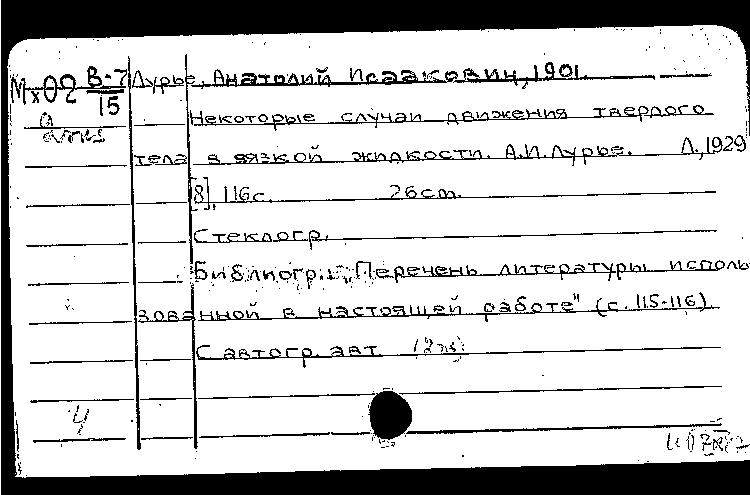 Мх02 В-7/15 Лурье, Анатолий Исаакович, 1901.
Некоторые случаи движения твердого
тела в вязкой жидкости. А.И.Лурье. Л.,1929
[8], 116с. 26см.
Стеклогр.
Библиогр.: "Перечень литературы исполь
зованной в настоящей работе" (с. 115-116)
С автогр. авт.
4